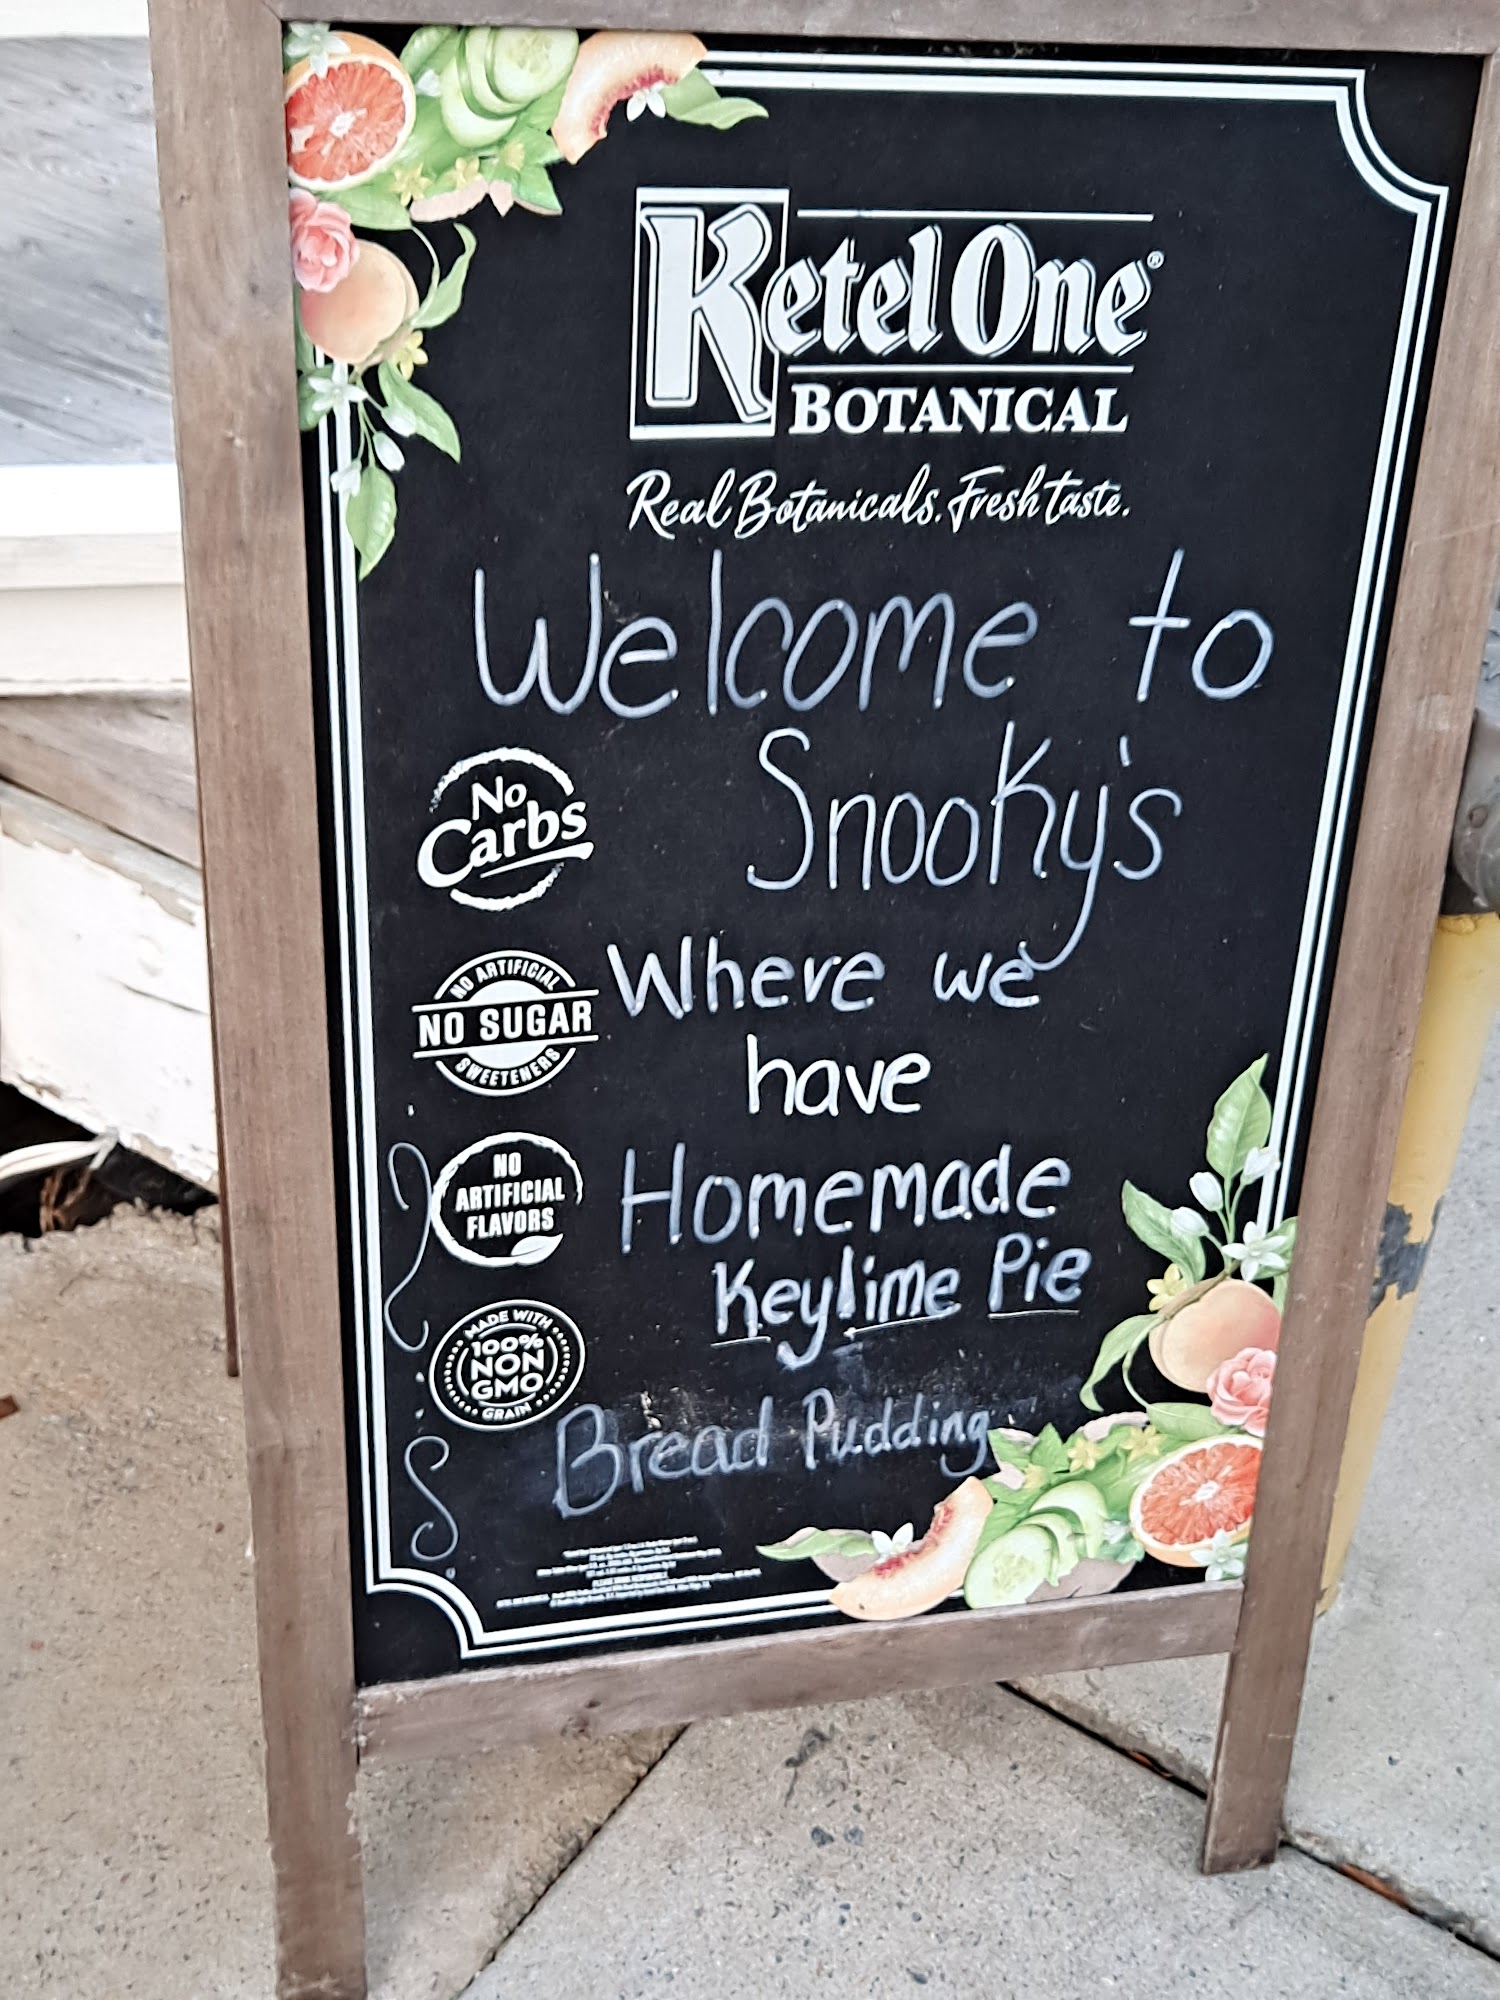 Ketel One®
BOTANICAL
Real Botanicals. Fresh taste.
Welcome to
Snooky's
No
Carbs
Where we
NO ARTIFICIAL
NO SUGAR
SWEETENERS
have
NO
ARTIFICIAL
FLAVORS
Homemade
Keylime Pie
MADE WITH
100%
NON
GMO
GRAIN
Bread Pudding